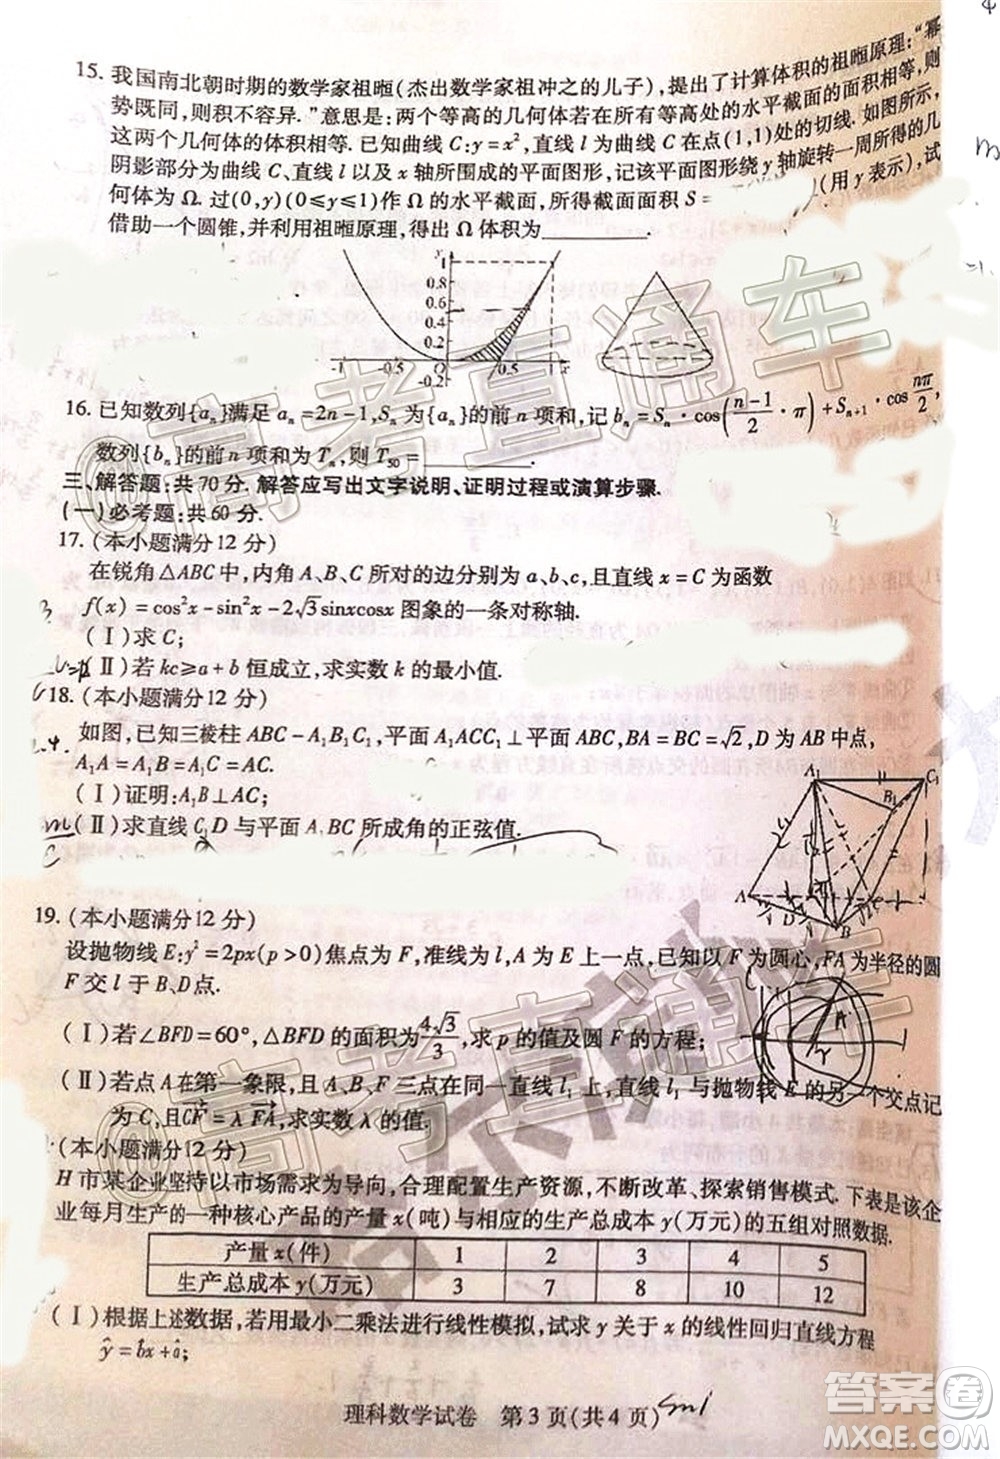 15. 我国南北朝时期的数学家祖暅(杰出数学家祖冲之的儿子), 提出了计算体积的祖暅原理: “幂
势既同, 则积不容异. ”意思是: 两个等高的几何体若在所有等高处的水平截面的面积相等, 则
这两个几何体的体积相等. 已知曲线 C: y = x², 直线 l 为曲线 C 在点(1,1)处的切线. 如图所示,
阴影部分为曲线 C、直线 l 以及 x 轴所围成的平面图形, 记该平面图形绕 y 轴旋转一周所得的几
何体为 Ω. 过(0,y)(0⩽y⩽1)作 Ω 的水平截面, 所得截面面积 S = (用 y 表示), 试
借助一个圆锥, 并利用祖暅原理, 得出 Ω 体积为________.
1
0.8
0.6
0.4
0.2
-1 -0.5 O 0.5 1 x
-0.2
16. 已知数列{aₙ}满足 aₙ=2n-1, Sₙ为{aₙ}的前 n 项和, 记 bₙ=Sₙ·cos((n-1)/2·π)+Sₙ₊₁·cos nπ/2,
数列{bₙ}的前 n 项和为 Tₙ, 则 T₅₀=________.
三、解答题: 共 70 分. 解答应写出文字说明、证明过程或演算步骤.
(一)必考题: 共 60 分.
17. (本小题满分12 分)
在锐角△ABC中, 内角 A、B、C 所对的边分别为 a、b、c, 且直线 x = C 为函数
f(x) = cos²x-sin²x-2√3sinxcosx 图象的一条对称轴.
(Ⅰ)求 C;
(Ⅱ)若 kc⩾a + b 恒成立, 求实数 k 的最小值.
18. (本小题满分12 分)
如图, 已知三棱柱 ABC-A₁B₁C₁, 平面 A₁ACC₁⊥平面 ABC, BA = BC=√2, D 为 AB 中点,
A₁A = A₁C = AC=2.
(Ⅰ)证明: A₁B⊥AC;
(Ⅱ)求直线 C₁D 与平面 A₁BC 所成角的正弦值.
A₁ C₁
B₁
D
B
19. (本小题满分12 分)
设抛物线 E: y² = 2px(p >0)焦点为 F, 准线为 l, A 为 E 上一点, 已知以 F 为圆心, FA 为半径的圆
F 交 l 于 B、D 点.
(Ⅰ)若 ∠BFD = 60°, △BFD 的面积为 4√3/3, 求 p 的值及圆 F 的方程;
(Ⅱ)若点 A 在第一象限, 且 A、B、F 三点在同一直线 l₁ 上, 直线 l₁ 与抛物线 E 的另一个交点记
为 C, 且CF = λFA, 求实数 λ 的值.
(本小题满分12 分)
H 市某企业坚持以市场需求为导向, 合理配置生产资源, 不断改革、探索销售模式. 下表是该企
业每月生产的一种核心产品的产量 x(吨)与相应的生产总成本 y(万元)的五组对照数据.
产量 x(件) 1 2 3 4 5
生产总成本 y(万元) 3 7 8 10 12
(Ⅰ)根据上述数据, 若用最小二乘法进行线性模拟, 试求 y 关于 x 的线性回归直线方程
ŷ = b̂x +â;
理科数学试卷 第 3 页(共 4 页)
@高考直通车
@高考直通车
答案卷
MXQE.COM